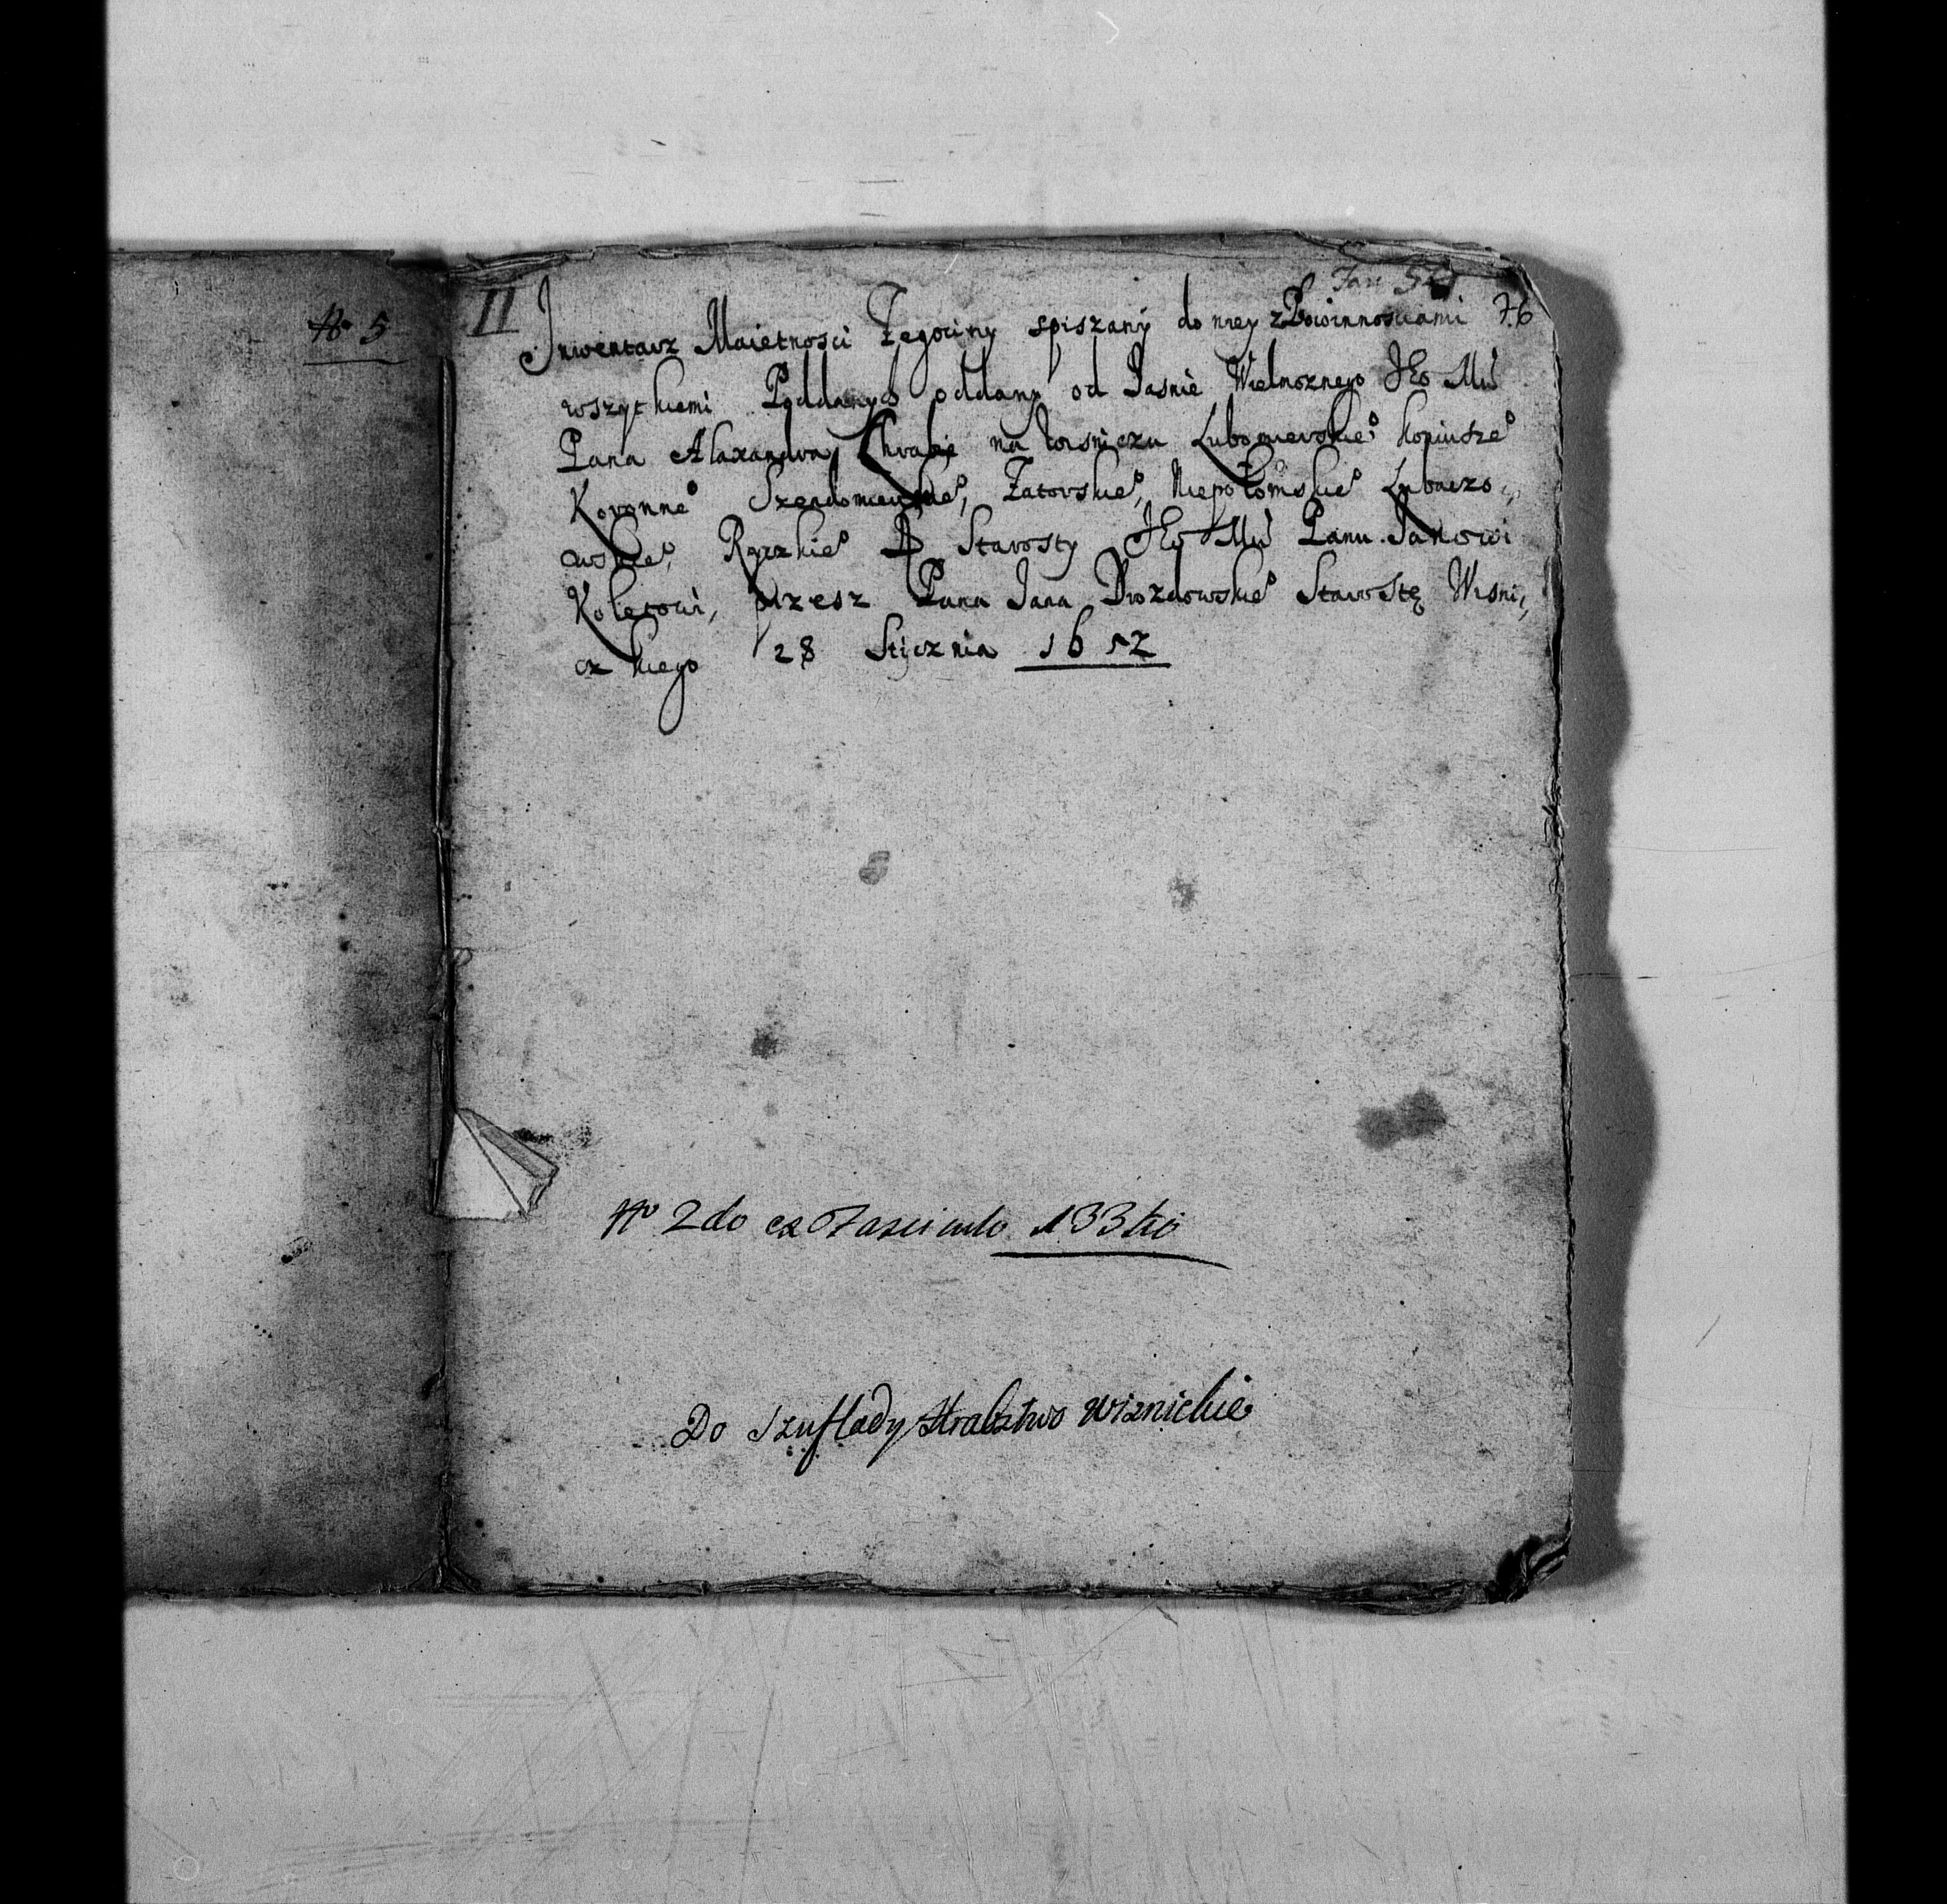 No 5
II
Inwentarz Maiętnosci Zegociny spiszany do niey z Powinnosciami 76
wszytkiemi Poddanych oddany od Jasnie Wielmoznego JEo Mci
Pana Alaxandra Chrabie na wisniczu Lubomierskieo Koniuszeo
Koronneo Szendomierskieo, Zatorskieo, Niepołomskieo Lubaczo„
wskieo, Ryczkieo Starosty JEo Mci Panu Janowi
przesz Pana Jana Drozdowskieo Starostę Wisni„
czkiego 28 Stycznia 1652
No 2do ex Fasciculo 133tio
Do Szuflady Hrabztwo Wiznickie